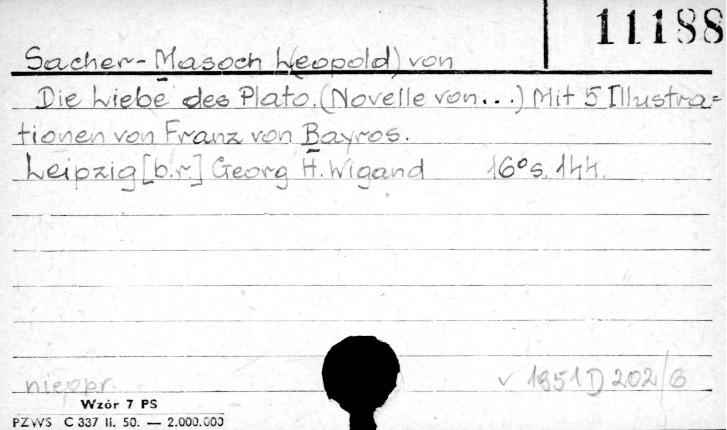 11188
Sacher-Masoch L(eopold) von
Die Liebe des Plato. (Novelle von...) Mit 5 Illustra=
tionen von Franz von Bayros.
Leipzig [b.r.] Georg H. Wigand 16° s. 144.
nieopr.
v 1951 D 202/6
Wzór 7 PS
PZWS C 337 II. 50. — 2.000.000